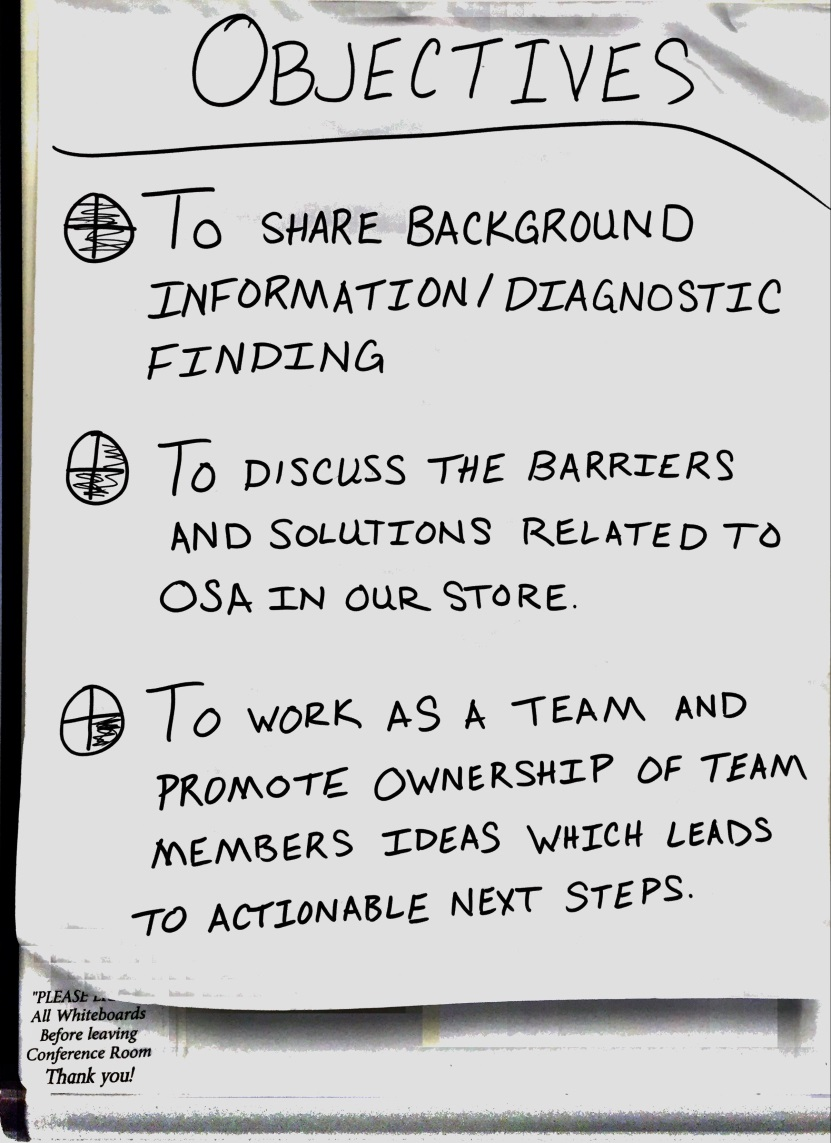 OBJECTIVES
TO SHARE BACKGROUND
INFORMATION/DIAGNOSTIC
FINDING
TO DISCUSS THE BARRIERS
AND SOLUTIONS RELATED TO
OSA IN OUR STORE.
TO WORK AS A TEAM AND
PROMOTE OWNERSHIP OF TEAM
MEMBERS IDEAS WHICH LEADS
TO ACTIONABLE NEXT STEPS.
"PLEASE
All Whiteboards
Before leaving
Conference Room
Thank you!